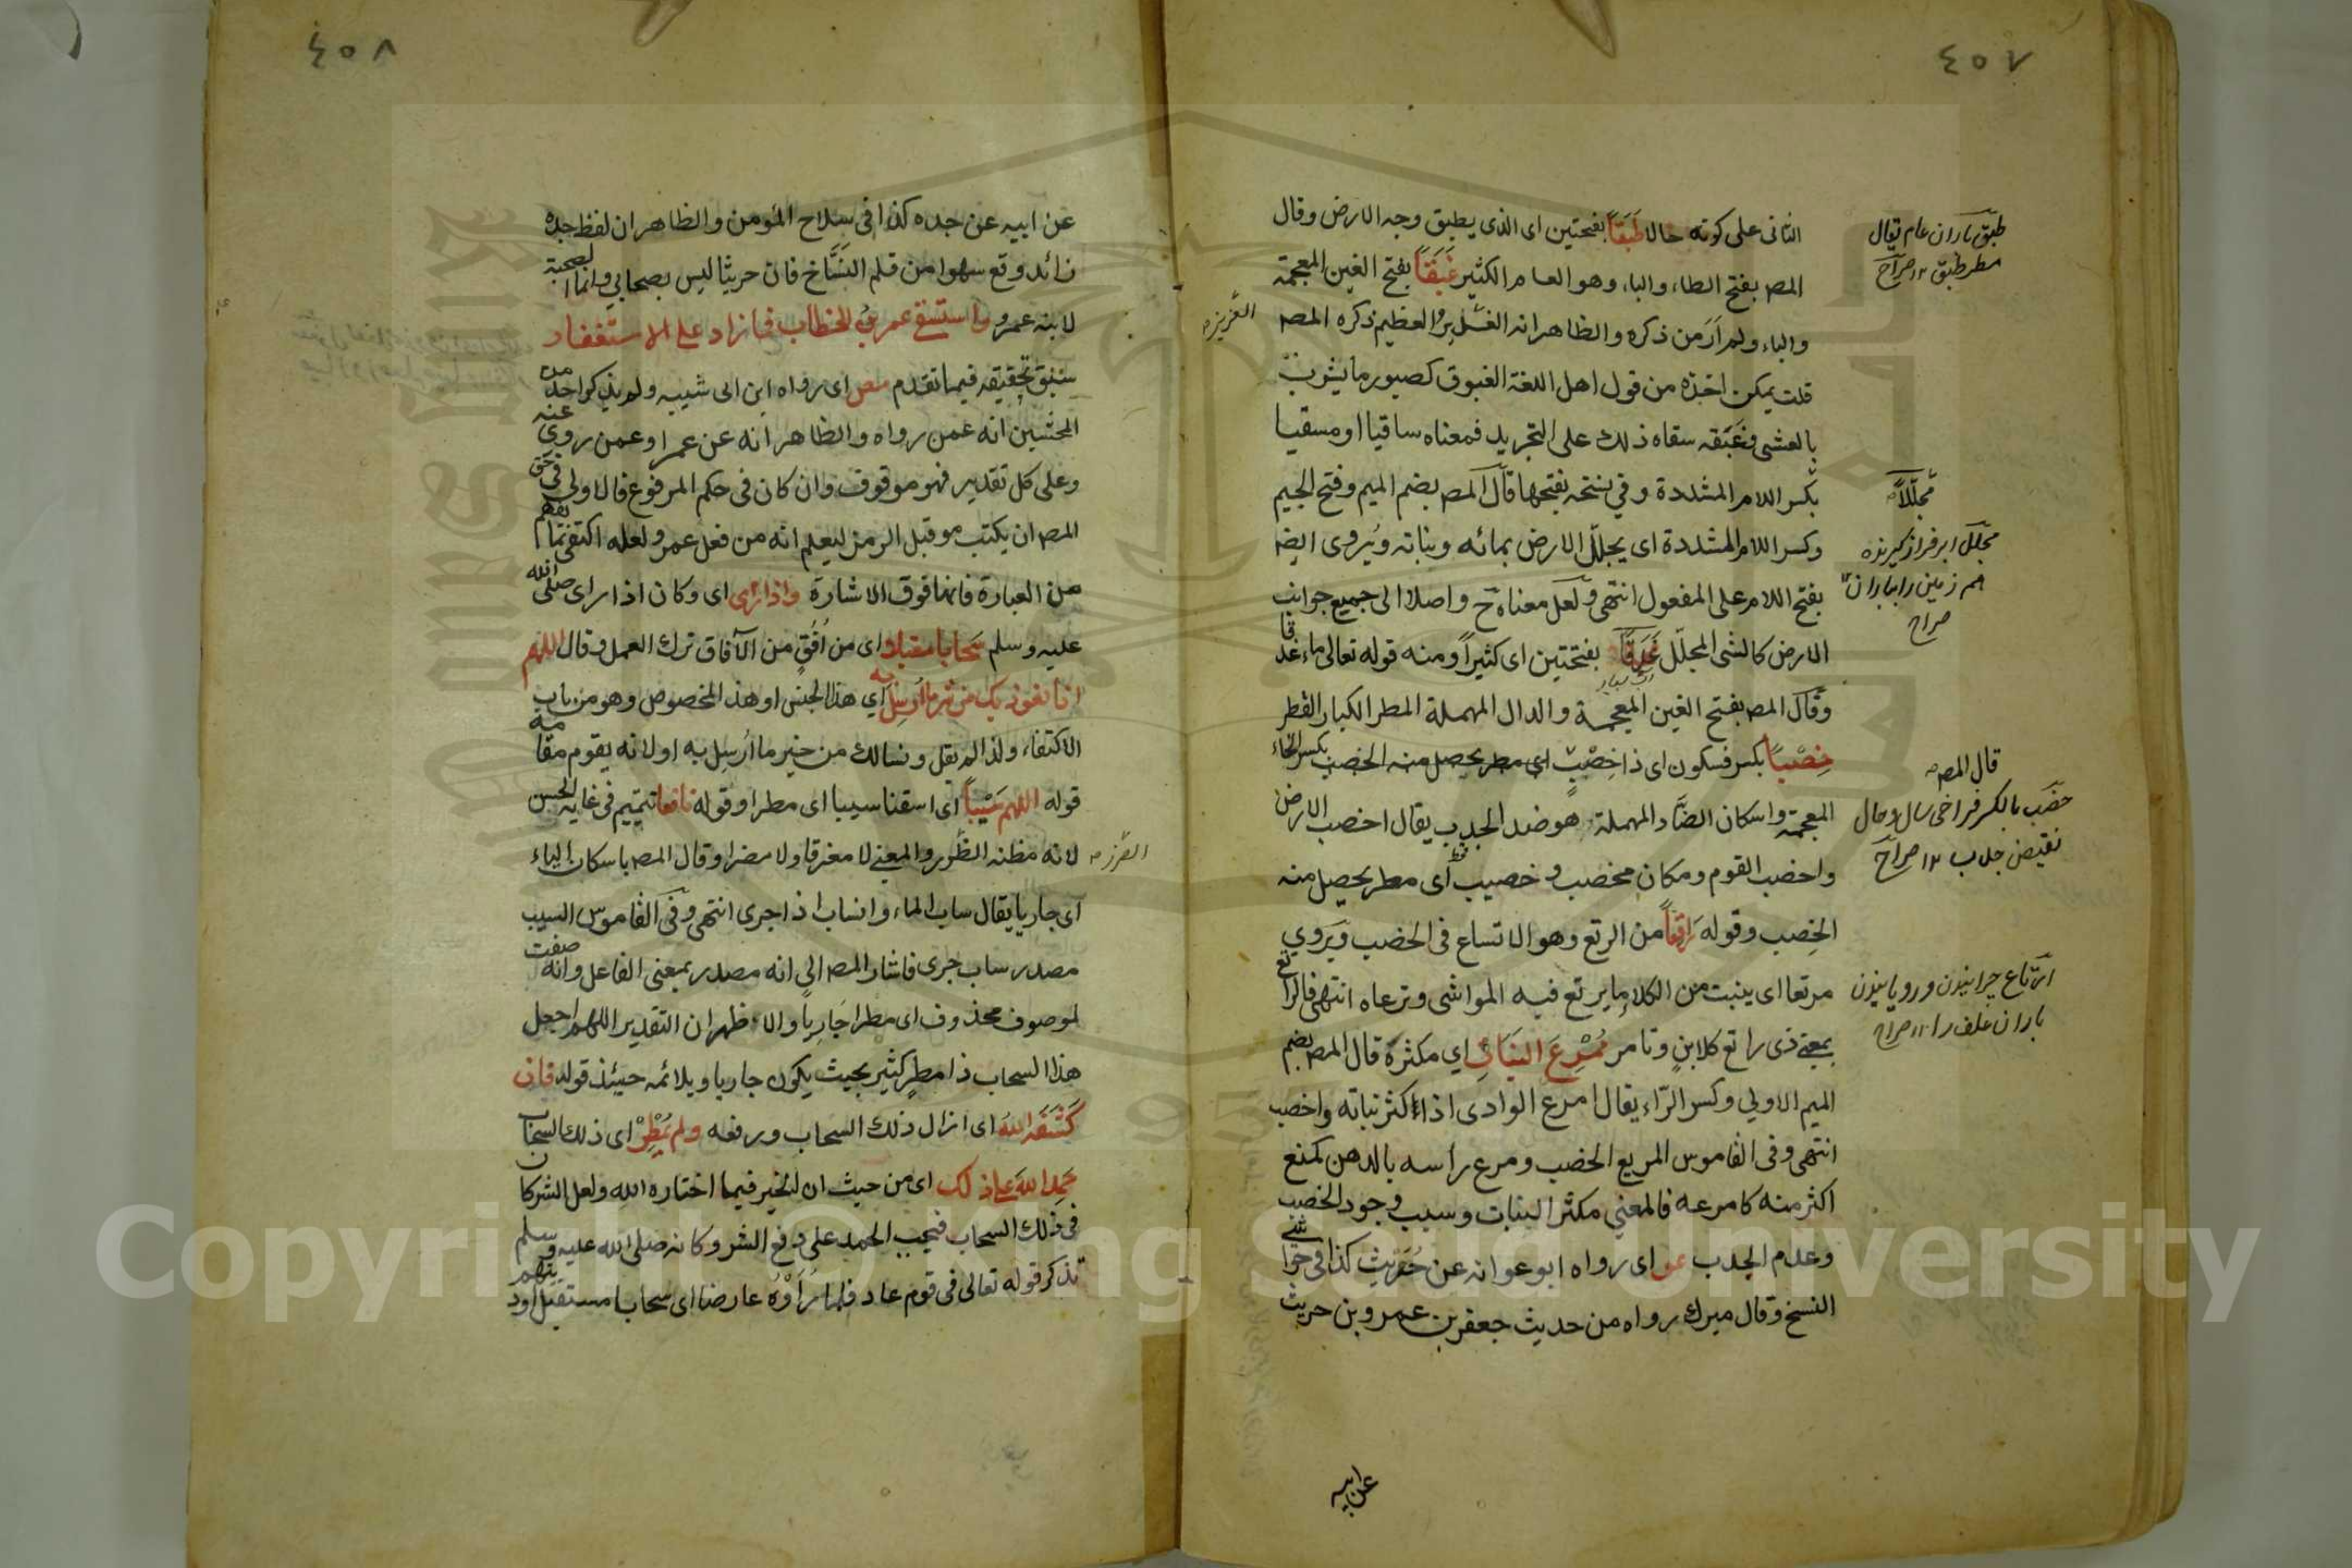 ٤٥٧
الثانى على كونه حالا طَبَقًا بفتحتين اى الذى يطبق وجه الارض وقال
المص بفتح الطاء والباء وهو العام الكثير غَبَقًا بفتح الغين المعجمة
والباء ولم ار من ذكره والظاهر انه الغسل بر والعظيم ذكره المص
قلت يمكن اخذه من قول اهل اللغة الغبوق كصبور ما يشرب
بالعشى وغبقه سقاه ذلك على التجريد فمعناه ساقيا او مسقيا
بكسر اللام المشددة وفي نسخة بفتحها قال المص بضم الميم وفتح الجيم
وكسر اللام المشددة اى يجلل الارض بمائه ونباته ويُروى ايضا
بفتح اللام على المفعول انتهى ولعل معناه ح واصلا الى جميع جوانب
الارض كالشى المجلل غَدَقًا بفتحتين اى كثيرا ومنه قوله تعالى ماء غدقا
وقال المص بفتح الغين المعجمة والدال المهملة المطر الكبار القطر
خِصْبًا بكسر فسكون اى ذا خِصْبٍ اي مطر يحصل منه الخصب بكسر الخاء
المعجمة واسكان الصاد المهملة هو ضد الجدب يقال اخصب الارض
واخصب القوم ومكان مخصب وخصيب اى مطر يحصل منه
الخِصب وقوله رَاتِعًا من الرتع وهو الاتساع فى الخصب ويروي
مرتعا اى ينبت من الكلأ ما يرتع فيه المواشى وترعاه انتهى فالراتع
بمعنى ذى راتع كلابنٍ وتامر مُمْرِعَ النبات اي مكثره قال المص بضم
الميم الاولي وكسر الرّاء يقال امرع الوادى اذا اكثر نباته واخصب
انتهى وفى القاموس المريع الخصب ومرع راسه بالدهن كمنع
اكثر منه كامرعه فالمعنى مكثر النبات وسبب وجود الخصب
وعدم الجدب عو اى رواه ابو عوانه عن حُرَيث كذا في حواشى
النسخ وقال ميرك رواه من حديث جعفر بن عمرو بن حريث
عن ابيه
طبق باران عام يقال
مطر طبق ١٢ صراح
مُجَلِّلاً
مجلل ابر فراز گیرنده
هم زمین را بباران ١٢
صراح
قال المص
خصب بالكسر فراخى سال وحال
نقيض جدب ١٢ صراح
ارتاع چرانيدن ورويانيدن
باران علف را ١٢ صراح
٤٥٨
عن ابيه عن جده كذا فى سلاح المؤمن والظاهر ان لفظ جده
زائد وقع سهوا من قلم النسَّاخ فان حريثا ليس بصحابي وانما الصحبة
لابنه عمرو واستسقى عمر بن الخطاب فما زاد على الاستغفار
سبق تحقيقه فيما تقدم مص اى رواه ابن ابى شيبه ولم يذكر احد من
المحشين انه عمن رواه والظاهر انه عن عمر او عمن روى عنه
وعلى كل تقدير فهو موقوف وان كان فى حكم المرفوع فالاولى في حق
المص ان يكتب مو قبل الرمز ليعلم انه من فعل عمر ولعله اكتفى بما يفهم
من العبارة فانها فوق الاشارة واذا رأى اى وكان اذا راى صلى الله
عليه وسلم سَحَابا مقبلا اى من اُفُقٍ من الآفاق ترك العمل وقال اللهم
انا نعوذ بك من شر ما اُرْسِلَ به اي هذا الجنس او هذا المخصوص وهو من باب
الاكتفاء ولذا لم يقل ونسالك من خير ما اُرسِل به او لانه يقوم مقامه
قوله اللهم سَيْبًا اى اسقنا سيبا اى مطرا وقوله نافعا تتميم فى غاية الحسن
لانه مظنه الضرر والمعنى لا مغرقا ولا مضرا وقال المص باسكان الياء
اى جاريا يقال ساب الماء وانساب اذا جرى انتهى وفى القاموس السيب
مصدر ساب جرى فاشار المص الى انه مصدر بمعنى الفاعل وانه صفت
لموصوف محذوف اى مطرا جَارِيًا والاظهر ان التقدير اللهم اجعل
هذا السحاب ذا مطر كثير بحيث يكون جاريا ويلائمه حينئذ قوله فان
كَشَفَه اللهُ اى ازال ذلك السحاب ورفعه ولم يُمْطِرْ اى ذلك السحاب
حَمِدَ اللهَ على ذلك اى من حيث ان الخير فيما اختاره الله ولعل الشر كان
فى ذلك السحاب فيجب الحمد على دفع الشر وكانه صلى الله عليه وسلم
تذكر قوله تعالى فى قوم عاد فلما رأوه عارضا اى سحابا مستقبل اوديتهم